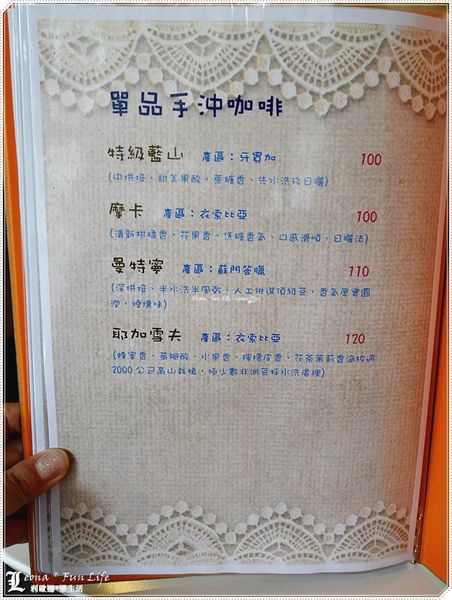 單品手沖咖啡
特級藍山 產區：牙買加 100
(中烘培、甜美果酸、蔗糖香、先水洗後日曬)
摩卡 產區：衣索比亞 100
(清新柑橘香、花果香、焦糖香氣、口感滑順、日曬法)
曼特寧 產區：蘇門答臘 110
(深烘焙、半水洗半風乾、人工挑選頂級豆、香氣厚實圓
潤、煙燻味)
耶加雪夫 產區：衣索比亞 120
(蜂蜜香、葡萄酸、水果香、檸檬皮香、花茶茉莉香海拔逾
2000公已高山栽植，極少數非洲豆採水洗處理)
Leona * Fun Life
利歐娜*樂生活